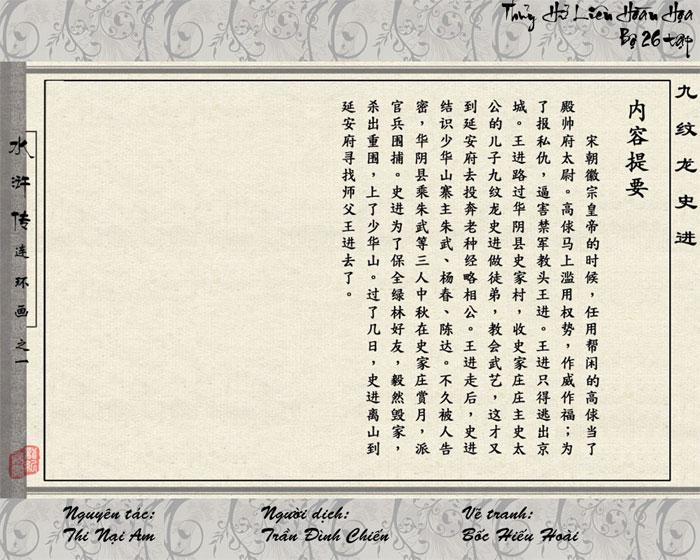 Thủy Hử Liên Hoàn Họa
Bộ 26 tập
九纹龙史进
内容提要
宋朝徽宗皇帝的时候，任用帮闲的高俅当了
殿帅府太尉。高俅马上滥用权势，作威作福；为
了报私仇，逼害禁军教头王进。王进只得逃出京
城。王进路过华阴县史家村，收史家庄庄主史太
公的儿子九纹龙史进做徒弟，教会武艺，这才又
到延安府去投奔老种经略相公。王进走后，史进
结识少华山寨主朱武、杨春、陈达。不久被人告
密，华阴县乘朱武等三人中秋在史家庄赏月，派
官兵围捕。史进为了保全绿林好友，毅然毁家，
杀出重围，上了少华山。过了几日，史进离山到
延安府寻找师父王进去了。
水浒传连环画之一
Nguyên tác:
Thi Nại Am
Người dịch:
Trần Đình Chiến
Vẽ tranh:
Bốc Hiếu Hoài